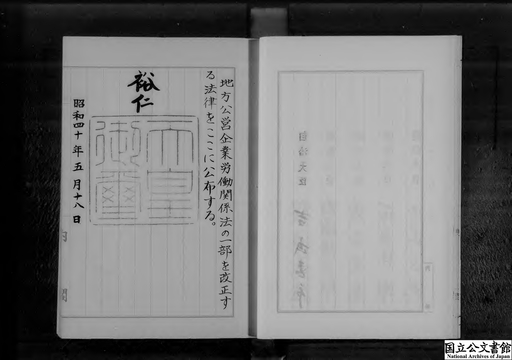 地方公営企業労働関係法の一部を改正す
る法律をここに公布する。
裕仁
天皇
御璽
昭和四十年五月十八日
内閣
自治大臣
国立公文書館
National Archives of Japan